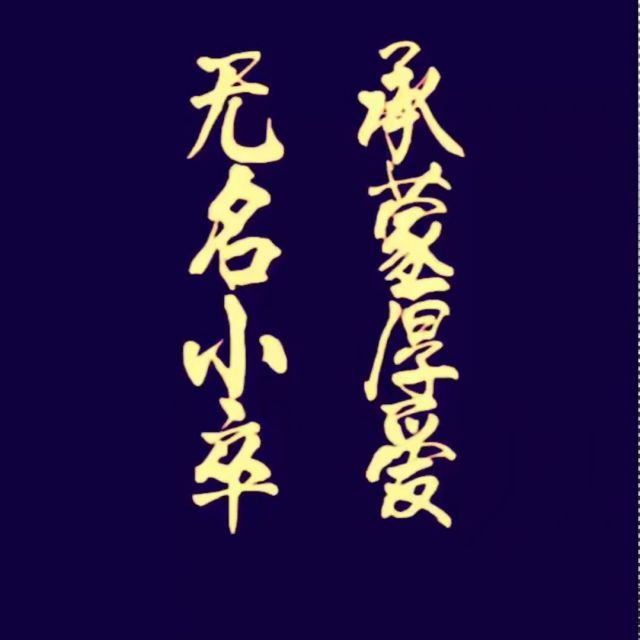 承蒙厚爱
无名小卒